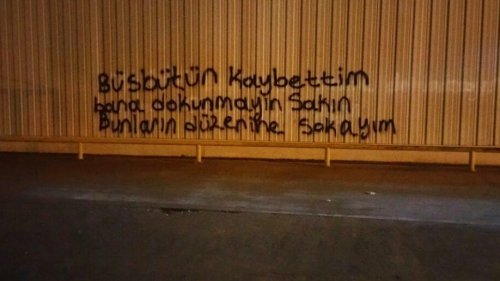 Büsbütün kaybettim
bana dokunmayın sakın
Bunların düzenine sokayım